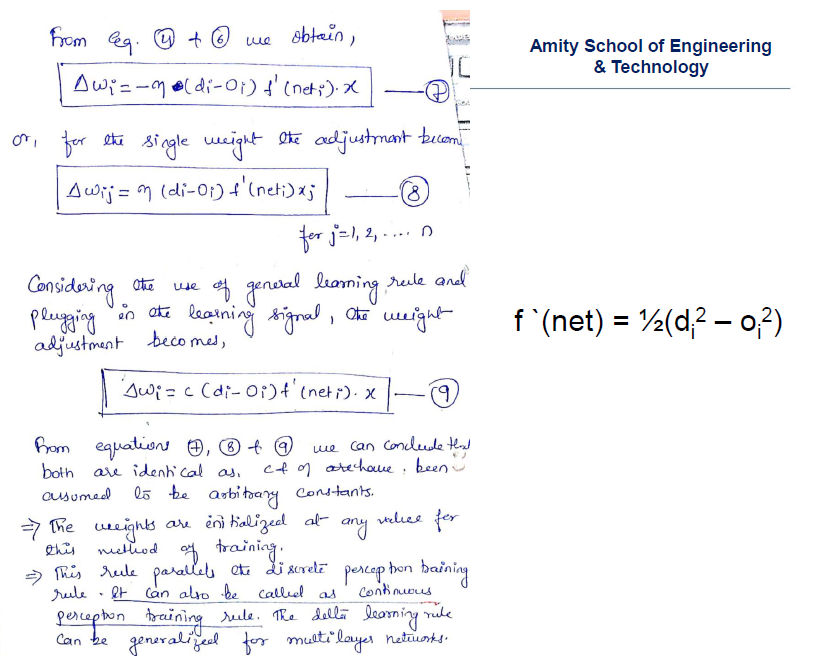 from eq. (4) + (6) we obtain,
Δwi = -η (di-Oi) f'(neti). x — (7)
or, for the single weight the adjustment becom
Δwij = η (di-Oi) f'(neti) xj — (8)
for j=1, 2, ..... n
Considering the use of general learning rule and
plugging in the learning signal, the weight
adjustment becomes,
Δwi = c (di-Oi) f'(neti). x — (9)
From equations (7), (8) & (9) we can conclude that
both are identical as, c & η been
assumed to be arbitrary constants.
⇒ The weights are initialized at any value for
this method of training.
⇒ This rule parallels the discrete perceptron training
rule. It can also be called as continuous
perceptron training rule. The delta learning rule
can be generalized for multilayer networks.
Amity School of Engineering
& Technology
f `(net) = ½(di² – oi²)